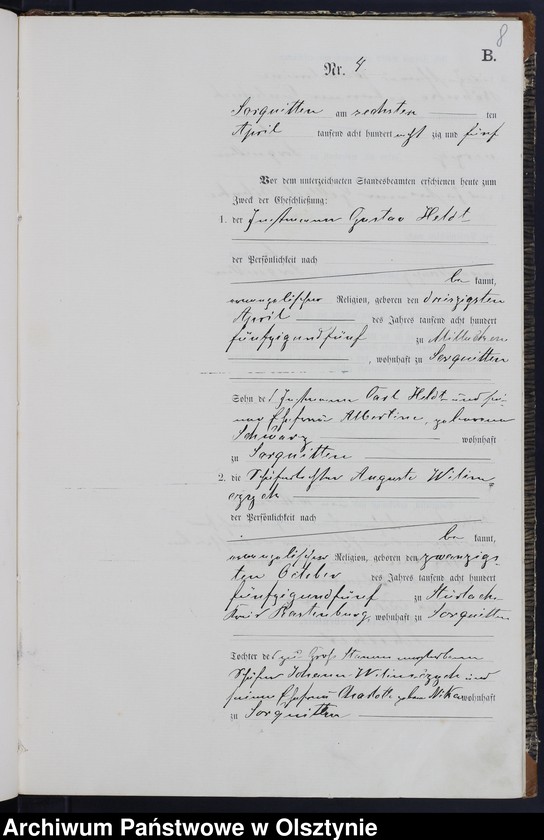 8
B.
Nr. 4
Sorquitten am sechsten ten
April tausend acht hundert acht zig und fünf
Vor dem unterzeichneten Standesbeamten erschienen heute zum
Zweck der Eheschließung:
1. der Instmann Gustav Heldt
der Persönlichkeit nach
be kannt,
evangelischer Religion, geboren den dreizigsten
April des Jahres tausend acht hundert
fünfzigundfünf zu
, wohnhaft zu Sorquitten
Sohn des Instmann Carl Heldt und sei-
ner Ehefrau Albertine, geborenen
Schwarz wohnhaft
zu Sorquitten
2. die Auguste Wilim-
czyck
der Persönlichkeit nach
be kannt,
evangelischer Religion, geboren den zwanzigs-
ten October des Jahres tausend acht hundert
fünfzigundfünf zu
Kreis Rastenburg, wohnhaft zu Sorquitten
Tochter des zu Groß verstorbenen
Schäfer Johann Wilimczyck und
seiner Ehefrau geb. wohnhaft
zu Sorquitten
Archiwum Państwowe w Olsztynie